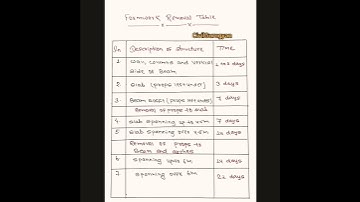 Formwork Removal Table
Civilbeeguru
Sn Description of structure Time
1 Wall, column and vertical side of Beam 1 to 2 days
2 Slab (props left under) 3 days
3 Beam soffit (props left under) 7 days
Removal of props to
4 slab spanning up to 4.5m 7 days
5 slab spanning over 4.5m 14 days
Removal of props to Beam and arches
6 spanning upto 6m 14 days
7 spanning over 6m 21 days